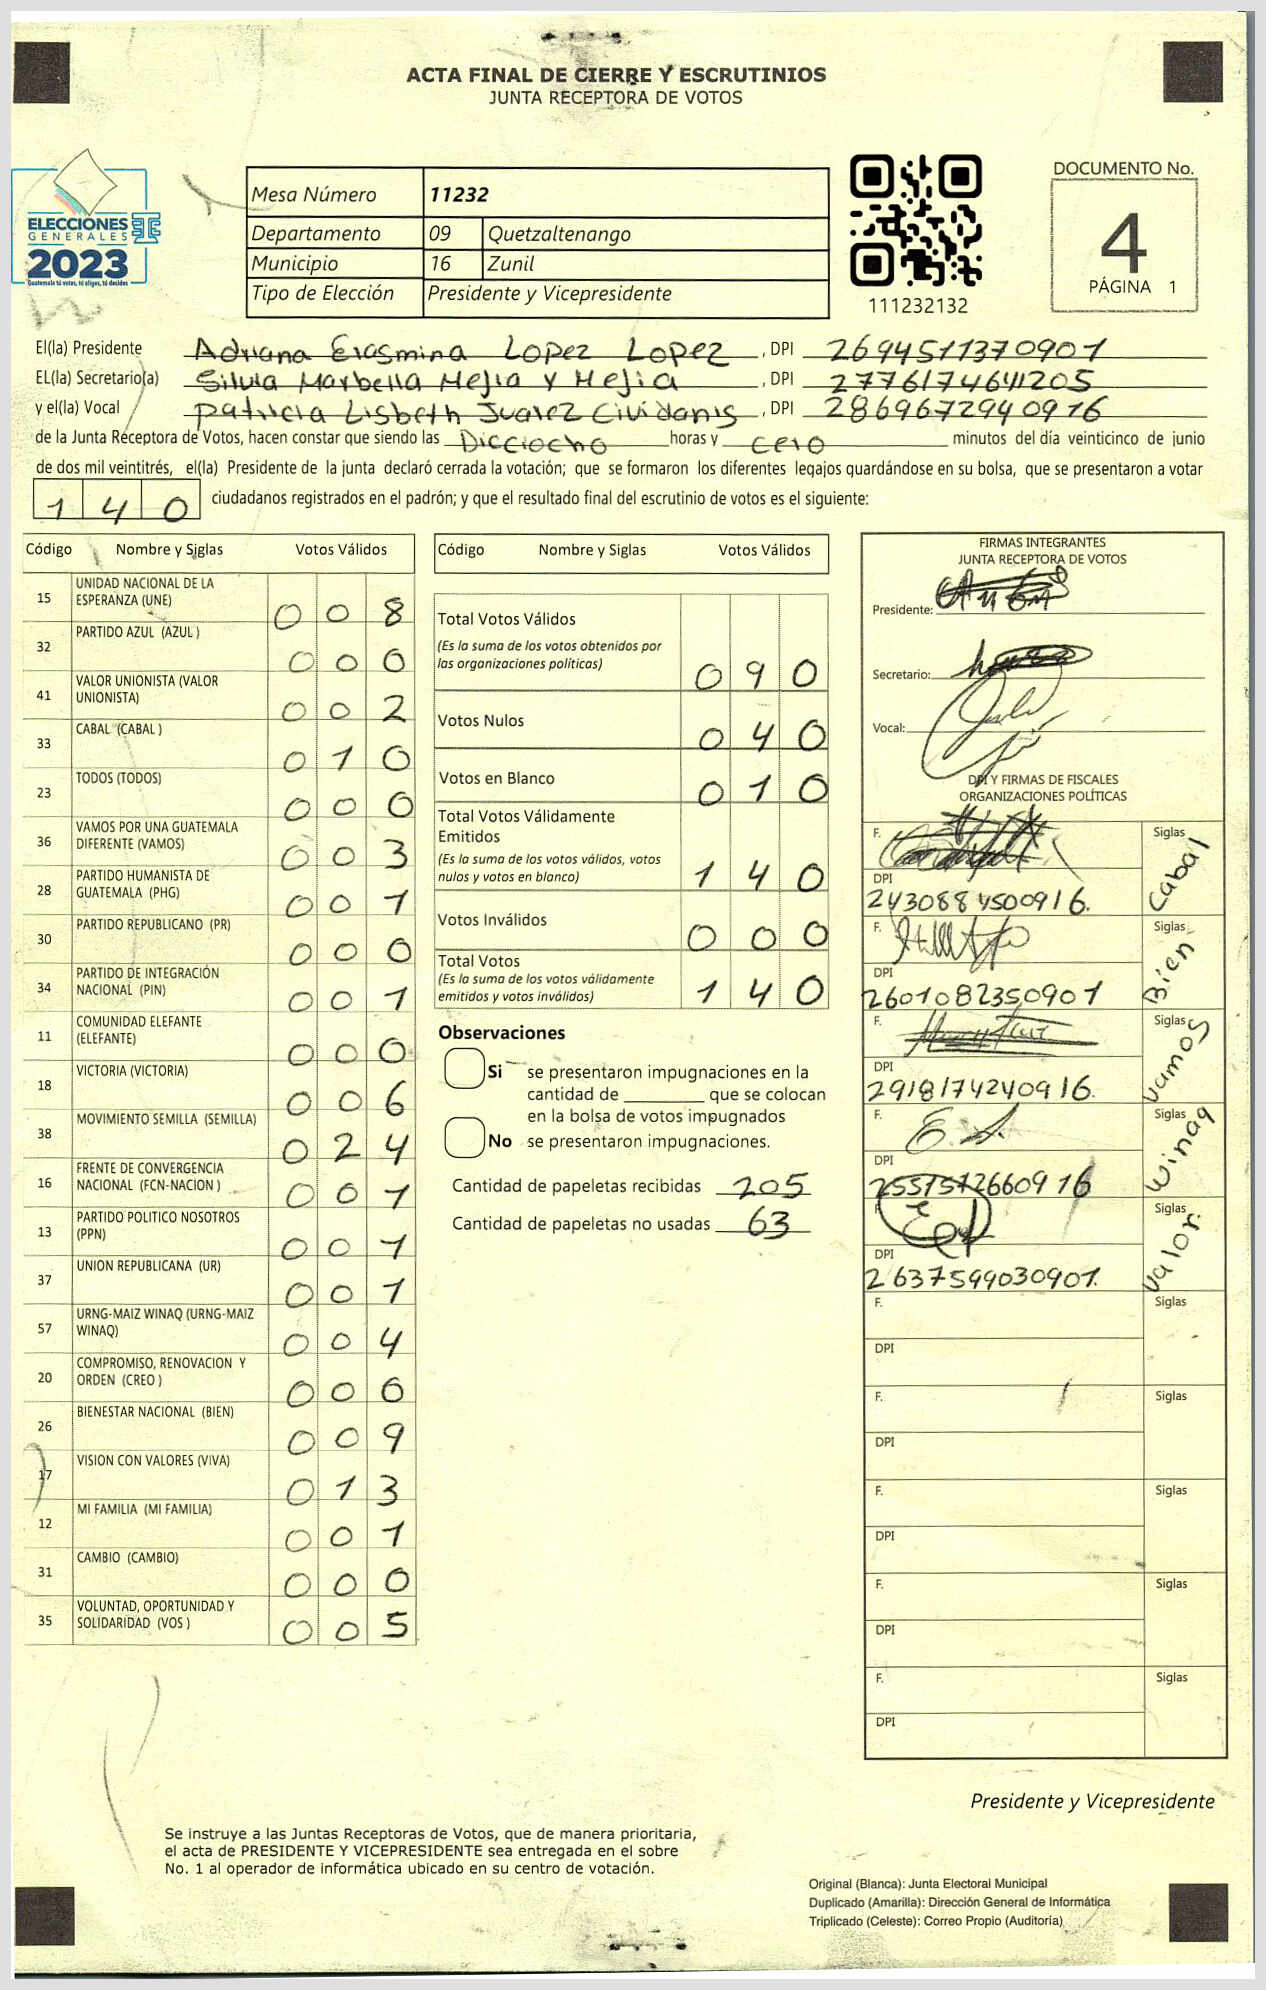 ACTA FINAL DE CIERRE Y ESCRUTINIOS
JUNTA RECEPTORA DE VOTOS
ELECCIONES
GENERALES
2023
Guatemala tú votas, tú eliges, tú decides
Mesa Número 11232
Departamento 09 Quetzaltenango
Municipio 16 Zunil
Tipo de Elección Presidente y Vicepresidente
111232132
DOCUMENTO No.
4
PÁGINA 1
El(la) Presidente Adriana Erasmina Lopez Lopez, DPI 2694511370901
EL(la) Secretario(a) Silvia Marbella Mejia y Mejia, DPI 2776174641205
y el(la) Vocal Patricia Lisbeth Juarez Cividanis, DPI 2869672940916
de la Junta Receptora de Votos, hacen constar que siendo las Dicciocho horas y cero minutos del día veinticinco de junio
de dos mil veintitrés, el(la) Presidente de la junta declaró cerrada la votación; que se formaron los diferentes legajos guardándose en su bolsa, que se presentaron a votar
140 ciudadanos registrados en el padrón; y que el resultado final del escrutinio de votos es el siguiente:
Código Nombre y Siglas Votos Válidos
15 UNIDAD NACIONAL DE LA ESPERANZA (UNE) 008
32 PARTIDO AZUL (AZUL ) 000
41 VALOR UNIONISTA (VALOR UNIONISTA) 002
33 CABAL (CABAL ) 010
23 TODOS (TODOS) 000
36 VAMOS POR UNA GUATEMALA DIFERENTE (VAMOS) 003
28 PARTIDO HUMANISTA DE GUATEMALA (PHG) 001
30 PARTIDO REPUBLICANO (PR) 000
34 PARTIDO DE INTEGRACIÓN NACIONAL (PIN) 001
11 COMUNIDAD ELEFANTE (ELEFANTE) 000
18 VICTORIA (VICTORIA) 006
38 MOVIMIENTO SEMILLA (SEMILLA) 024
16 FRENTE DE CONVERGENCIA NACIONAL (FCN-NACION ) 001
13 PARTIDO POLITICO NOSOTROS (PPN) 001
37 UNION REPUBLICANA (UR) 001
57 URNG-MAIZ WINAQ (URNG-MAIZ WINAQ) 004
20 COMPROMISO, RENOVACION Y ORDEN (CREO ) 000
26 BIENESTAR NACIONAL (BIEN) 009
17 VISION CON VALORES (VIVA) 013
12 MI FAMILIA (MI FAMILIA) 001
31 CAMBIO (CAMBIO) 000
35 VOLUNTAD, OPORTUNIDAD Y SOLIDARIDAD (VOS ) 005
Código Nombre y Siglas Votos Válidos
Total Votos Válidos
(Es la suma de los votos obtenidos por
las organizaciones políticas) 090
Votos Nulos 040
Votos en Blanco 010
Total Votos Válidamente
Emitidos
(Es la suma de los votos válidos, votos
nulos y votos en blanco) 140
Votos Inválidos 000
Total Votos
(Es la suma de los votos válidamente
emitidos y votos inválidos) 140
Observaciones
Si se presentaron impugnaciones en la
cantidad de ________ que se colocan
en la bolsa de votos impugnados
No se presentaron impugnaciones.
Cantidad de papeletas recibidas 205
Cantidad de papeletas no usadas 63
FIRMAS INTEGRANTES
JUNTA RECEPTORA DE VOTOS
Presidente:
Secretario:
Vocal:
DPI Y FIRMAS DE FISCALES
ORGANIZACIONES POLÍTICAS
F. Siglas Cabal
DPI
2430884500916.
F. Siglas Bien
DPI
2601082350901
F. Siglas Vamos
DPI
2918174240916.
F. Siglas Winaq
DPI
2551572660916
F. Siglas Valor.
DPI
2637599030901.
F. Siglas
DPI
F. Siglas
DPI
F. Siglas
DPI
F. Siglas
DPI
F. Siglas
DPI
Presidente y Vicepresidente
Se instruye a las Juntas Receptoras de Votos, que de manera prioritaria,
el acta de PRESIDENTE Y VICEPRESIDENTE sea entregada en el sobre
No. 1 al operador de informática ubicado en su centro de votación.
Original (Blanca): Junta Electoral Municipal
Duplicado (Amarilla): Dirección General de Informática
Triplicado (Celeste): Correo Propio (Auditoría)